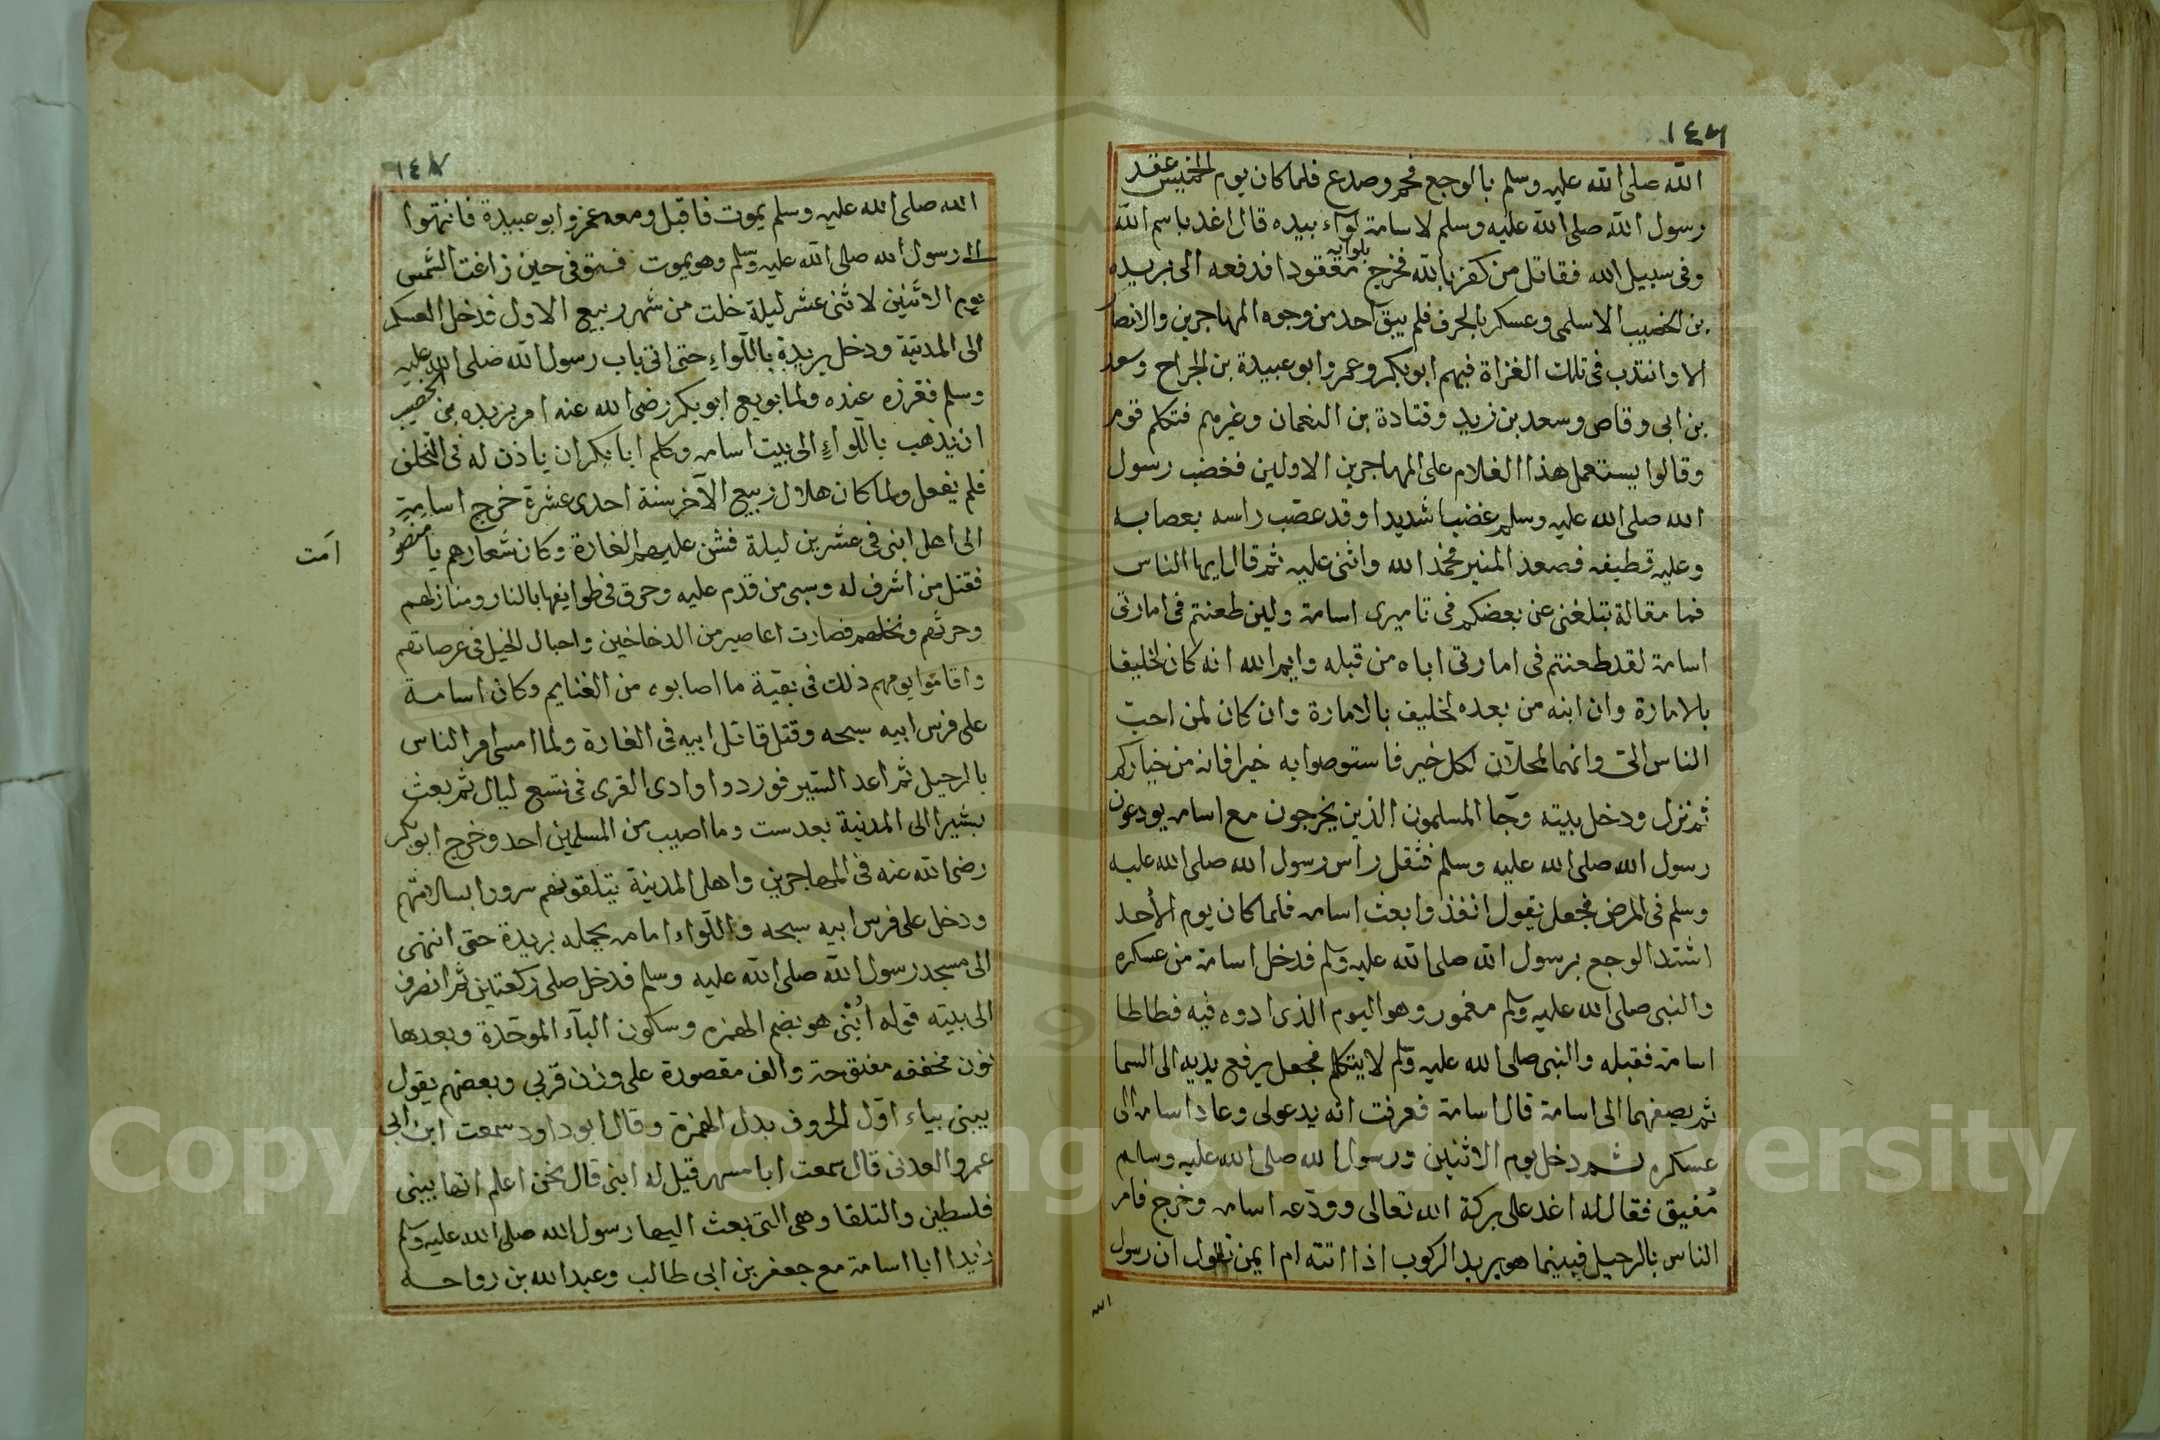 ١٤٦
الله صلى الله عليه وسلم بالوجع فحم وصدع فلما كان يوم الخميس عقد
رسول الله صلى الله عليه وسلم لاسامة لواء بيده قال اغد باسم الله
وفى سبيل الله فقاتل من كفر بالله فخرج بلوايه معقودا فدفعه الى بريده
بن الخصيب الاسلمى وعسكر بالجرف فلم يبق احد من وجوه المهاجرين والانصا
الا وانتدب فى تلك الغزاة فيهم ابو بكر وعمر وابو عبيدة بن الجراح وسعد
بن ابى وقاص وسعد بن زيد وقتادة بن النعمان وغيرهم فتكلم قوم
وقالوا يستعمل هذا الغلام على المهاجرين الاولين فغضب رسول
الله صلى الله عليه وسلم غضبا شديدا وقد عصّب راسه بعصابه
وعليه قطيفه فصعد المنبر فحمد الله واثنى عليه ثم قال ايها الناس
فما مقالة بتلغنى عن بعضكم فى تاميرى اسامة ولين طعنتم فى امارتى
اسامة لقد طعنتم فى امارتى اباه من قبله وايم الله انه كان لخليقا
بالامارة وان ابنه من بعده لخليق بالامارة وان كان لمن احبّ
الناس الىّ وانهما لمحلّان لكل خير فاستوصوا به خيرا فانه من خياركم
ثم نزل ودخل بيته وجآ المسلمون الذين يخرجون مع اسامه يودعون
رسول الله صلى الله عليه وسلم فثقل راس رسول الله صلى الله عليه
وسلم فى المرض فجعل يقول انفذوا بعث اسامه فلما كان يوم الأحد
اشتد الوجع برسول الله صلى الله عليه وسلم فدخل اسامة من عسكره
والنبى صلى الله عليه وسلم مغمور وهو اليوم الذى ادوه فيه فطاطا
اسامة فقبله والنبى صلى الله عليه وسلم لا يتكلم فجعل يرفع يديه الى السما
ثم يصفهما الى اسامة قال اسامة فعرفت انه يدعو لى وعاد اسامه الى
عسكره ثم دخل يوم الاثنين ورسول الله صلى الله عليه وسلم
مُفيق فقال له اغد على بركة الله تعالى وودّعه اسامه وخرج فامر
الناس بالرحيل فبينما هو يريد الركوب اذا اتته ام ايمن تقول ان رسول
الله
١٤٧
الله صلى الله عليه وسلم يموت فاقبل ومعه عمر وابو عبيدة فانتهوا
الى رسول الله صلى الله عليه وسلم وهو يموت فتوفى حين زاغت الشمس
يوم الاثنين لاثنى عشر ليلة خلت من شهر ربيع الاول فدخل العسكر
الى المدينة ودخل بريدة باللواءِ حتى اتى باب رسول الله صلى الله عليه
وسلم فغرزه عنده ولما بويع ابو بكر رضى الله عنه امر بريده بن الخصيب
ان يذهب باللواءِ الى بيت اسامه وكلم ابا بكر ان ياذن له فى التخلف
فلم يفعل ولما كان هلال ربيع الآخر سنة احدى عشرة خرج اسامة
الى اهل ابنى فى عشرين ليلة فشن عليهم الغارة وكان شعارهم يا منصورُ
امت
فقتل من اشرف له وسبى من قدم عليه وحرق فى طوايفها بالنار ومنازلهم
وحرثهم ونخلهم فصارت اعاصير من الدخاخين واجال الخيل فى عرصاتهم
واقاموا يومهم ذلك فى بقيّة ما اصابوه من الغنايم وكان اسامة
على فرس ابيه سبحه وقتل قاتل ابيه فى الغارة ولما امسى امر الناس
بالرحيل ثم اعد السّير فوردوا وادى القرى فى تسع ليال ثم بعث
بشيرا الى المدنية بعد ست وما اصيب من المسلمين احد وخرج ابو بكر
رضى الله عنه فى المهاجرين واهل المدينة يتلقونهم سرورا بسلامتهم
ودخل على فرس ابيه سبحه واللّواء امامه يحمله بريدة حتى انتهى
الى مسجد رسول الله صلى الله عليه وسلم فدخل صلى ركعتين ثم انصرف
الى بيته قوله اُبْنى هو بضم الهمزه وسكون البآء الموحّدة وبعدها
نون مخففه مفتوحة والف مقصورة على وزن قربى وبعضهم يقول
يبنى بياء اوّل الحروف بدل الهمزة وقال ابو داود سمعت ابن ابى
عمرو العدنى قال سمعت ابا مسهر قيل له ابنى قال نحن اعلم انها يبنى
فلسطين والتلقا وهى التى بعث اليها رسول الله صلى الله عليه وسلم
زيدا ابا اسامة مع جعفر بن ابى طالب وعبد الله بن رواحه
Copyright © King Saud University